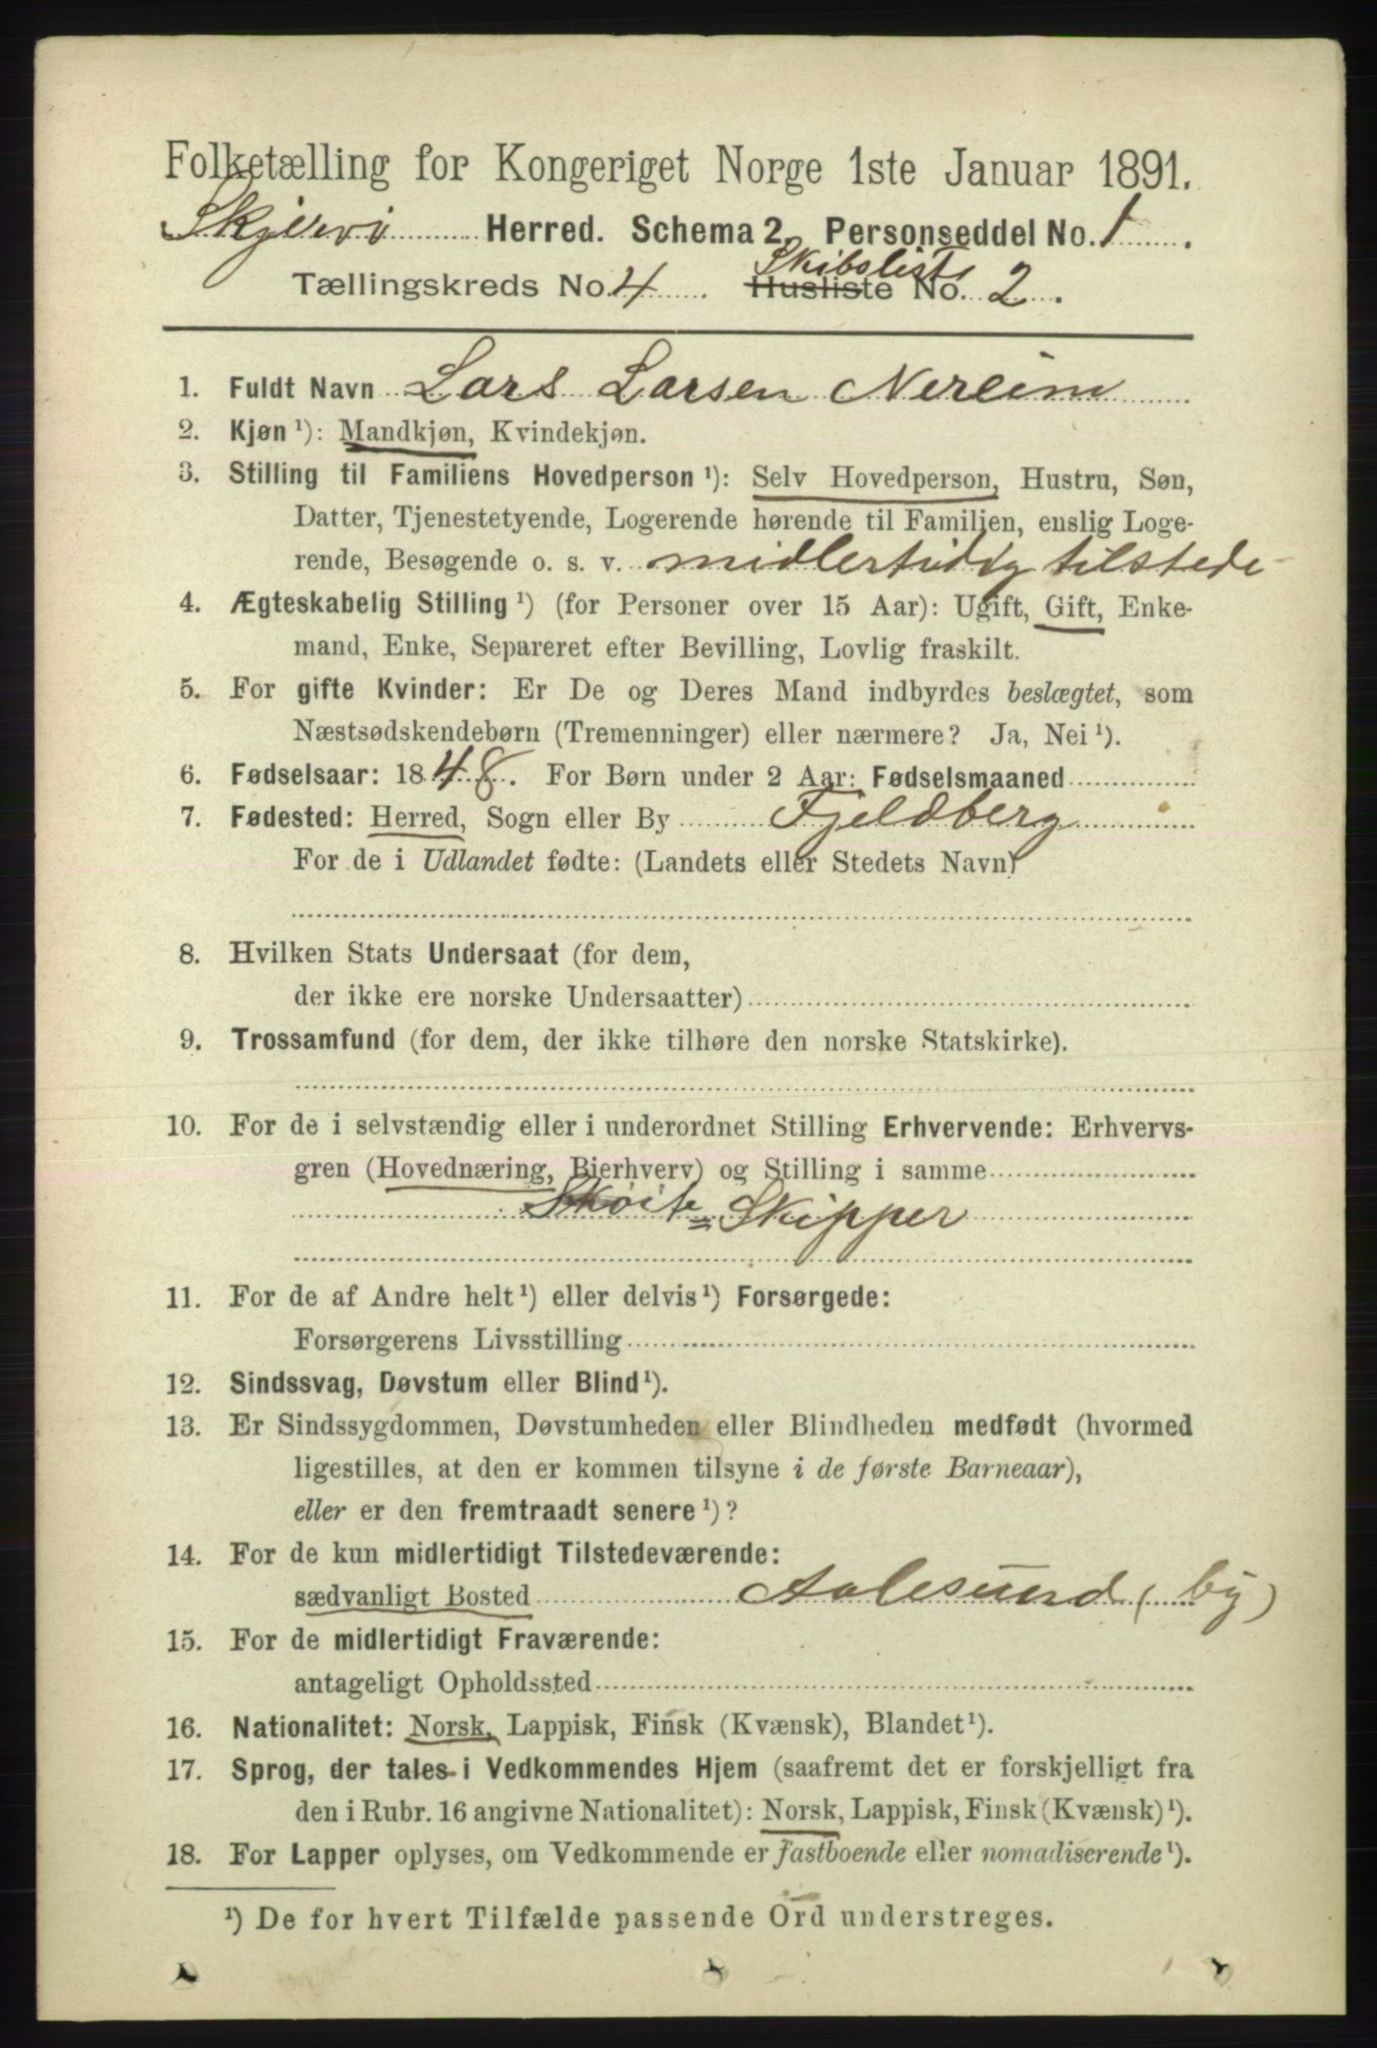 Folketælling for Kongeriget Norge 1ste Januar 1891.
Skjervø Herred. Schema 2. Personseddel No. 1.
Skibsliste
Tællingskreds No. 4. Husliste No. 2.
1. Fuldt Navn Lars Larsen Nereim
2. Kjøn¹): Mandkjøn, Kvindekjøn.
3. Stilling til Familiens Hovedperson¹): Selv Hovedperson, Hustru, Søn,
Datter, Tjenestetyende, Logerende hørende til Familien, enslig Loge-
rende, Besøgende o. s. v. midlertidig tilstede
4. Ægteskabelig Stilling¹) (for Personer over 15 Aar): Ugift, Gift, Enke-
mand, Enke, Separeret efter Bevilling, Lovlig fraskilt.
5. For gifte Kvinder: Er De og Deres Mand indbyrdes beslægtet, som
Næstsødskendebørn (Tremenninger) eller nærmere? Ja, Nei¹).
6. Fødselsaar: 1848. For Børn under 2 Aar: Fødselsmaaned
7. Fødested: Herred, Sogn eller By Fjeldberg
For de i Udlandet fødte: (Landets eller Stedets Navn)
8. Hvilken Stats Undersaat (for dem,
der ikke ere norske Undersaatter)
9. Trossamfund (for dem, der ikke tilhøre den norske Statskirke).
10. For de i selvstændig eller i underordnet Stilling Erhvervende: Erhvervs-
gren (Hovednæring, Bierhverv) og Stilling i samme
Skøite=Skipper
11. For de af Andre helt¹) eller delvis¹) Forsørgede:
Forsørgerens Livsstilling
12. Sindssvag, Døvstum eller Blind¹).
13. Er Sindssygdommen, Døvstumheden eller Blindheden medfødt (hvormed
ligestilles, at den er kommen tilsyne i de første Barneaar),
eller er den fremtraadt senere¹)?
14. For de kun midlertidigt Tilstedeværende:
sædvanligt Bosted Aalesund (by)
15. For de midlertidigt Fraværende:
antageligt Opholdssted
16. Nationalitet: Norsk, Lappisk, Finsk (Kvænsk), Blandet¹).
17. Sprog, der tales i Vedkommendes Hjem (saafremt det er forskjelligt fra
den i Rubr. 16 angivne Nationalitet): Norsk, Lappisk, Finsk (Kvænsk)¹).
18. For Lapper oplyses, om Vedkommende er fastboende eller nomadiserende¹).
¹) De for hvert Tilfælde passende Ord understreges.